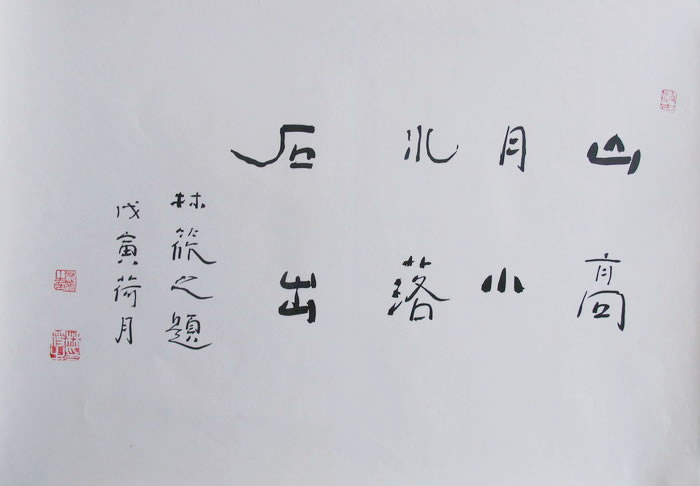 山高
月小
水落
石出
林筱之題
戊寅荷月